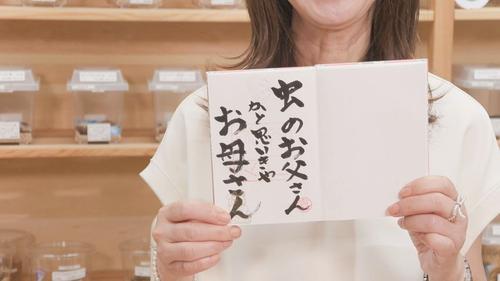 虫のお父さん
かと思いきや
お母さん